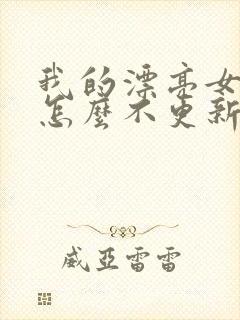 我的漂亮女
怎麼不更新
威亞雷雷